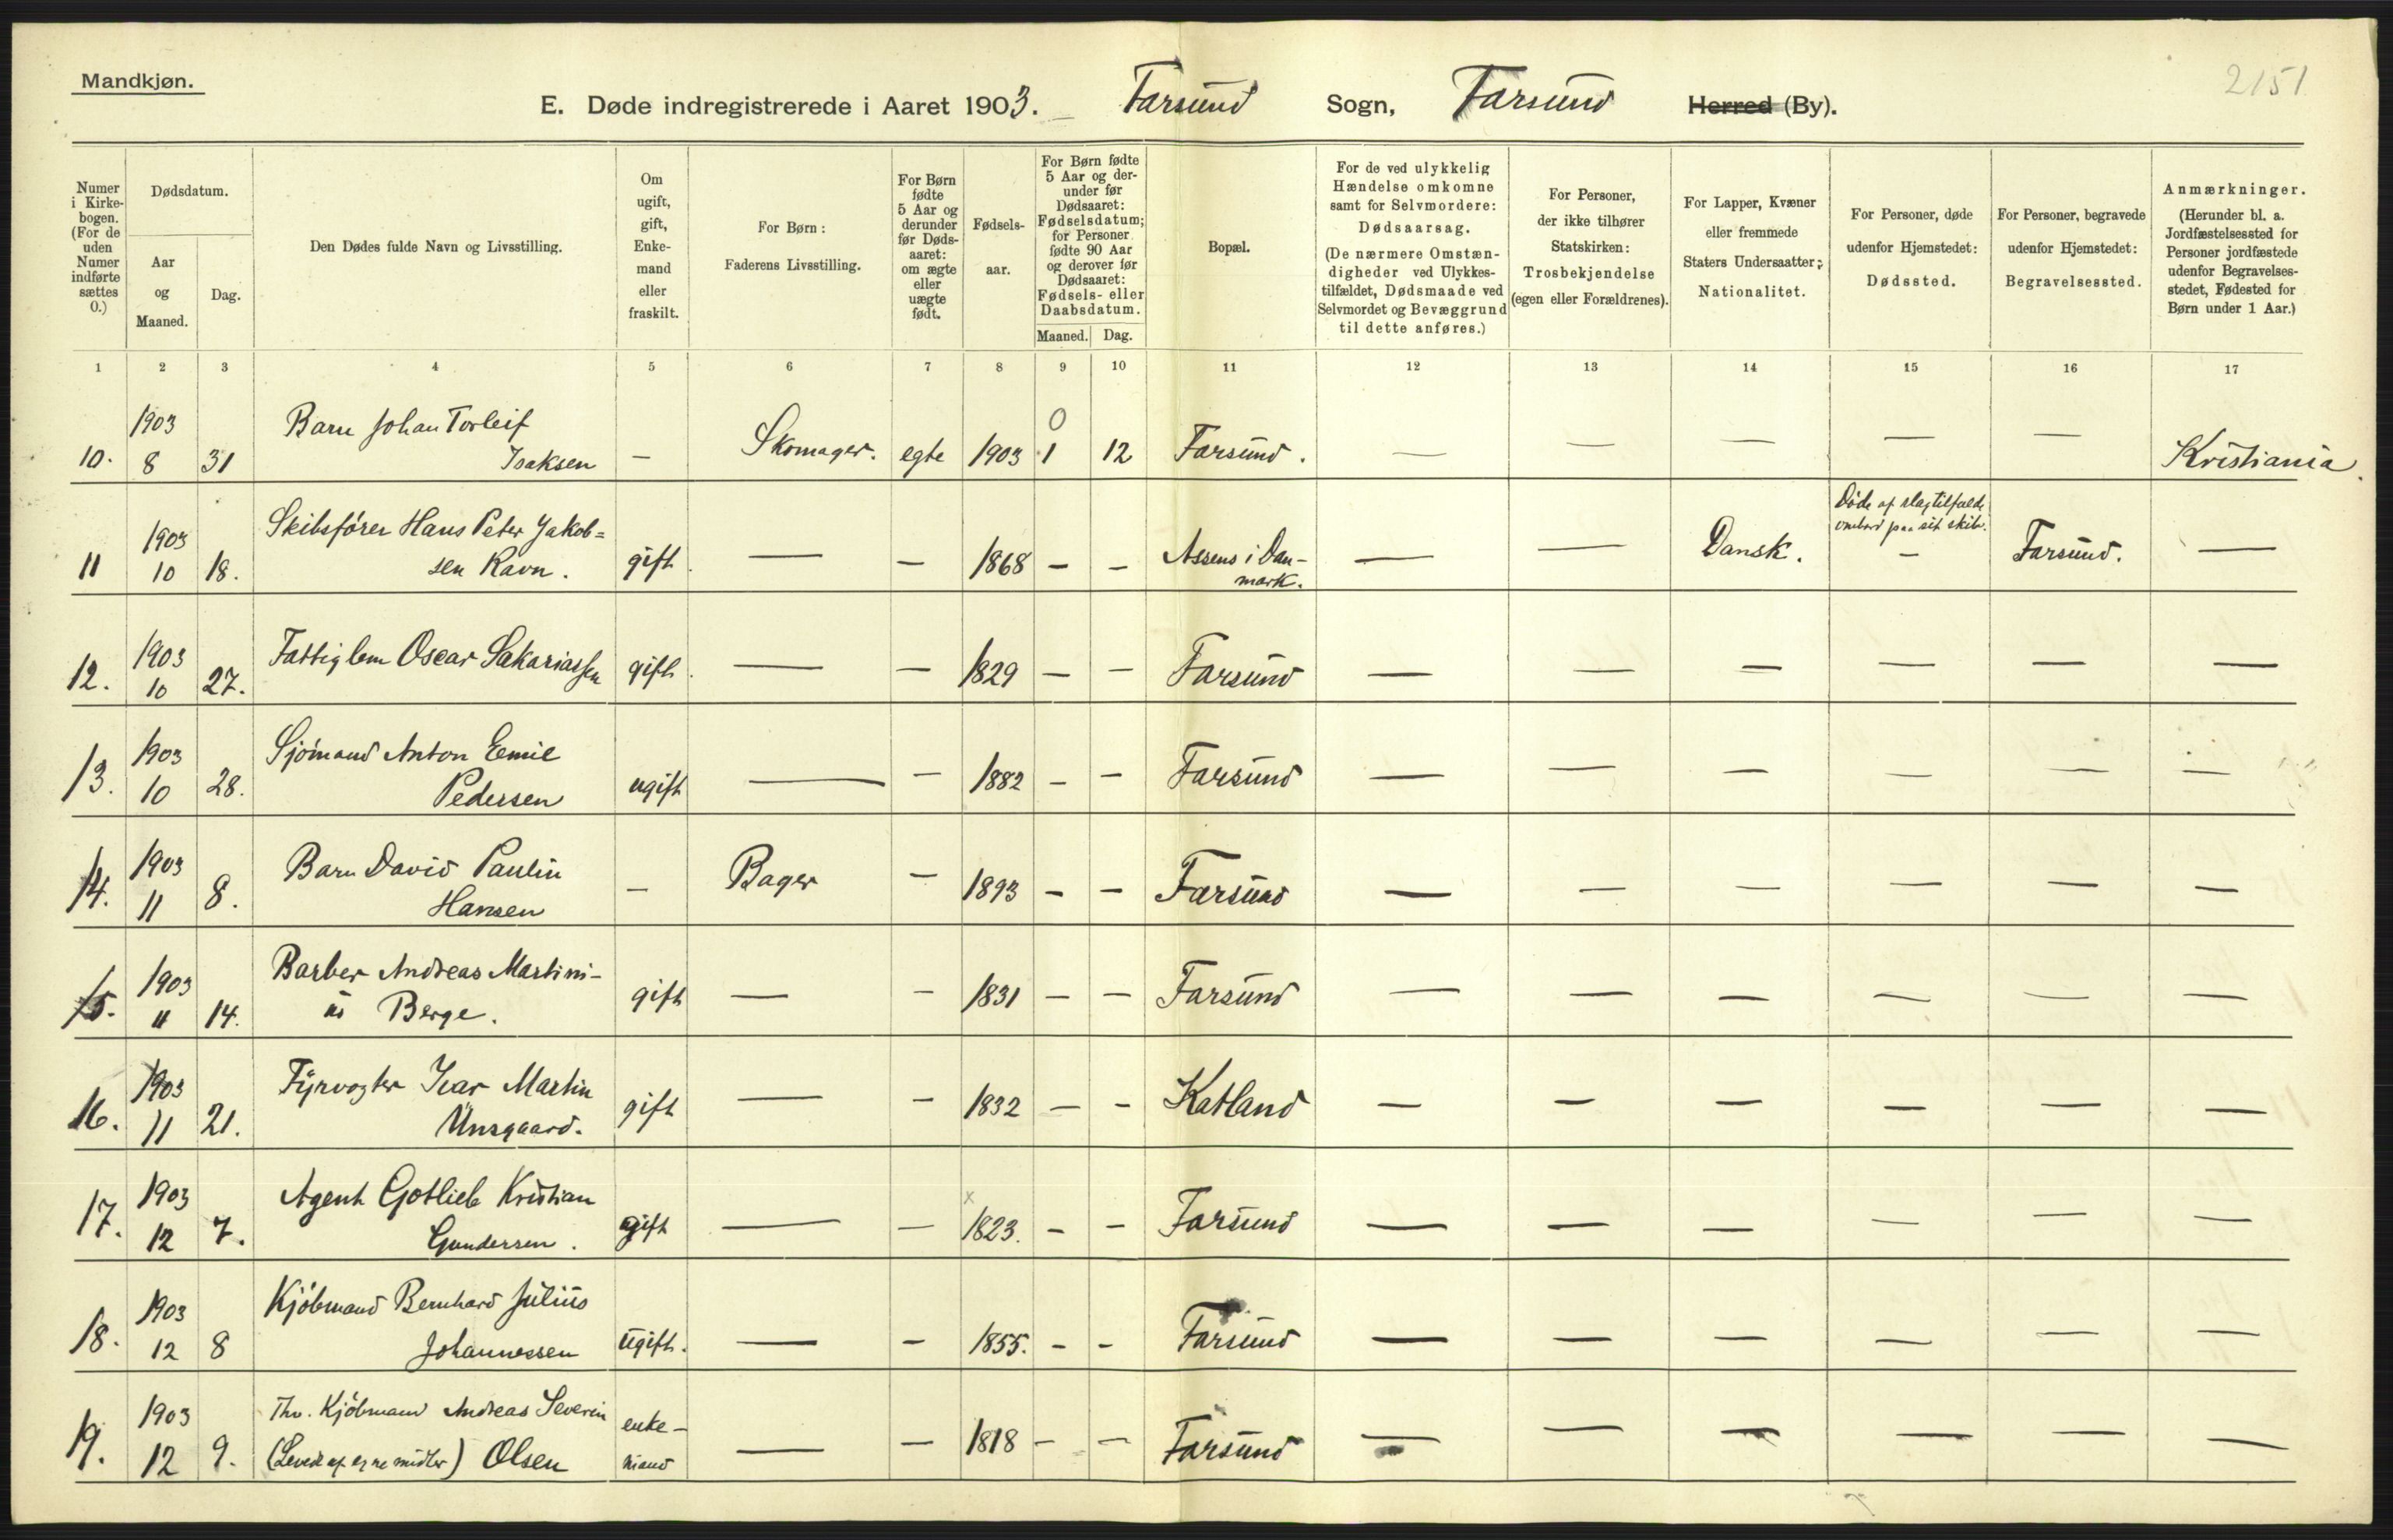 Mandkjøn.
2151
E. Døde indregistrerede i Aaret 1903. Farsund Sogn, Farsund Herred (By).
Numer i Kirke-bogen. (For de uden Numer indførte sættes 0.)
Dødsdatum.
Aar og Maaned.
Dag.
Den Dødes fulde Navn og Livsstilling.
Om ugift, gift, Enke-mand eller fraskilt.
For Børn: Faderens Livsstilling.
For Børn fødte 5 Aar og derunder før Døds-aaret: om ægte eller uægte født.
Fødsels-aar.
For Børn fødte 5 Aar og der-under før Dødsaaret: Fødselsdatum; for Personer fødte 90 Aar og derover før Dødsaaret: Fødsels- eller Daabsdatum.
Maaned. Dag.
Bopæl.
For de ved ulykkelig Hændelse omkomne samt for Selvmordere: Dødsaarsag. (De nærmere Omstæn-digheder ved Ulykkes-tilfældet, Dødsmaade ved Selvmordet og Bevæggrund til dette anføres.)
For Personer, der ikke tilhører Statskirken: Trosbekjendelse (egen eller Forældrenes).
For Lapper, Kvæner eller fremmede Staters Undersaatter; Nationalitet.
For Personer, døde udenfor Hjemstedet: Dødssted.
For Personer, begravede udenfor Hjemstedet: Begravelsessted.
Anmærkninger. (Herunder bl. a. Jordfæstelsessted for Personer jordfæstede udenfor Begravelses-stedet, Fødested for Børn under 1 Aar.)
1 2 3 4 5 6 7 8 9 10 11 12 13 14 15 16 17
1903 Barn Johan Torleif 0
10. 8 31 Isaksen — Skomager. egte 1903 1 12 Farsund. — — — — — Kristiania.
1903 Skibsfører Hans Peter Jakob= Døde af slagtilfælde ombord paa sit skib.
11 10 18. sen Ravn. gift. — — 1868 — — Assens i Dan-mark. — — Dansk. — Farsund. —
1903 Fattiglem Oscar Sakariassen
12. 10 27. gift. — — 1829 — — Farsund — — — — — —
1903 Sjømand Anton Emil
13. 10 28. Pedersen ugift — — 1882 — — Farsund — — — — — —
1903 Barn David Paulin
14. 11 8. Hansen — Bager — 1893 — — Farsund — — — — — —
1903 Barber Andreas Martini-
15. 11 14. us Berge. gift — — 1831 — — Farsund — — — — — —
1903 Fyrvogter Ivar Martin
16. 11 21. Unsgaard. gift — — 1832 — — Katland — — — — — —
1903 Agent Gotlieb Kristian x
17. 12 7. Gundersen. gift — — 1823. — — Farsund — — — — — —
1903 Kjøbmand Bernhard Julius
18. 12 8 Johannessen ugift. — — 1855. — — Farsund — — — — — —
1903 Fhv. Kjøbmand Andreas Severin enke-
19. 12 9. (Levede af egne midler) Olsen mand — — 1818 — — Farsund — — — — — —